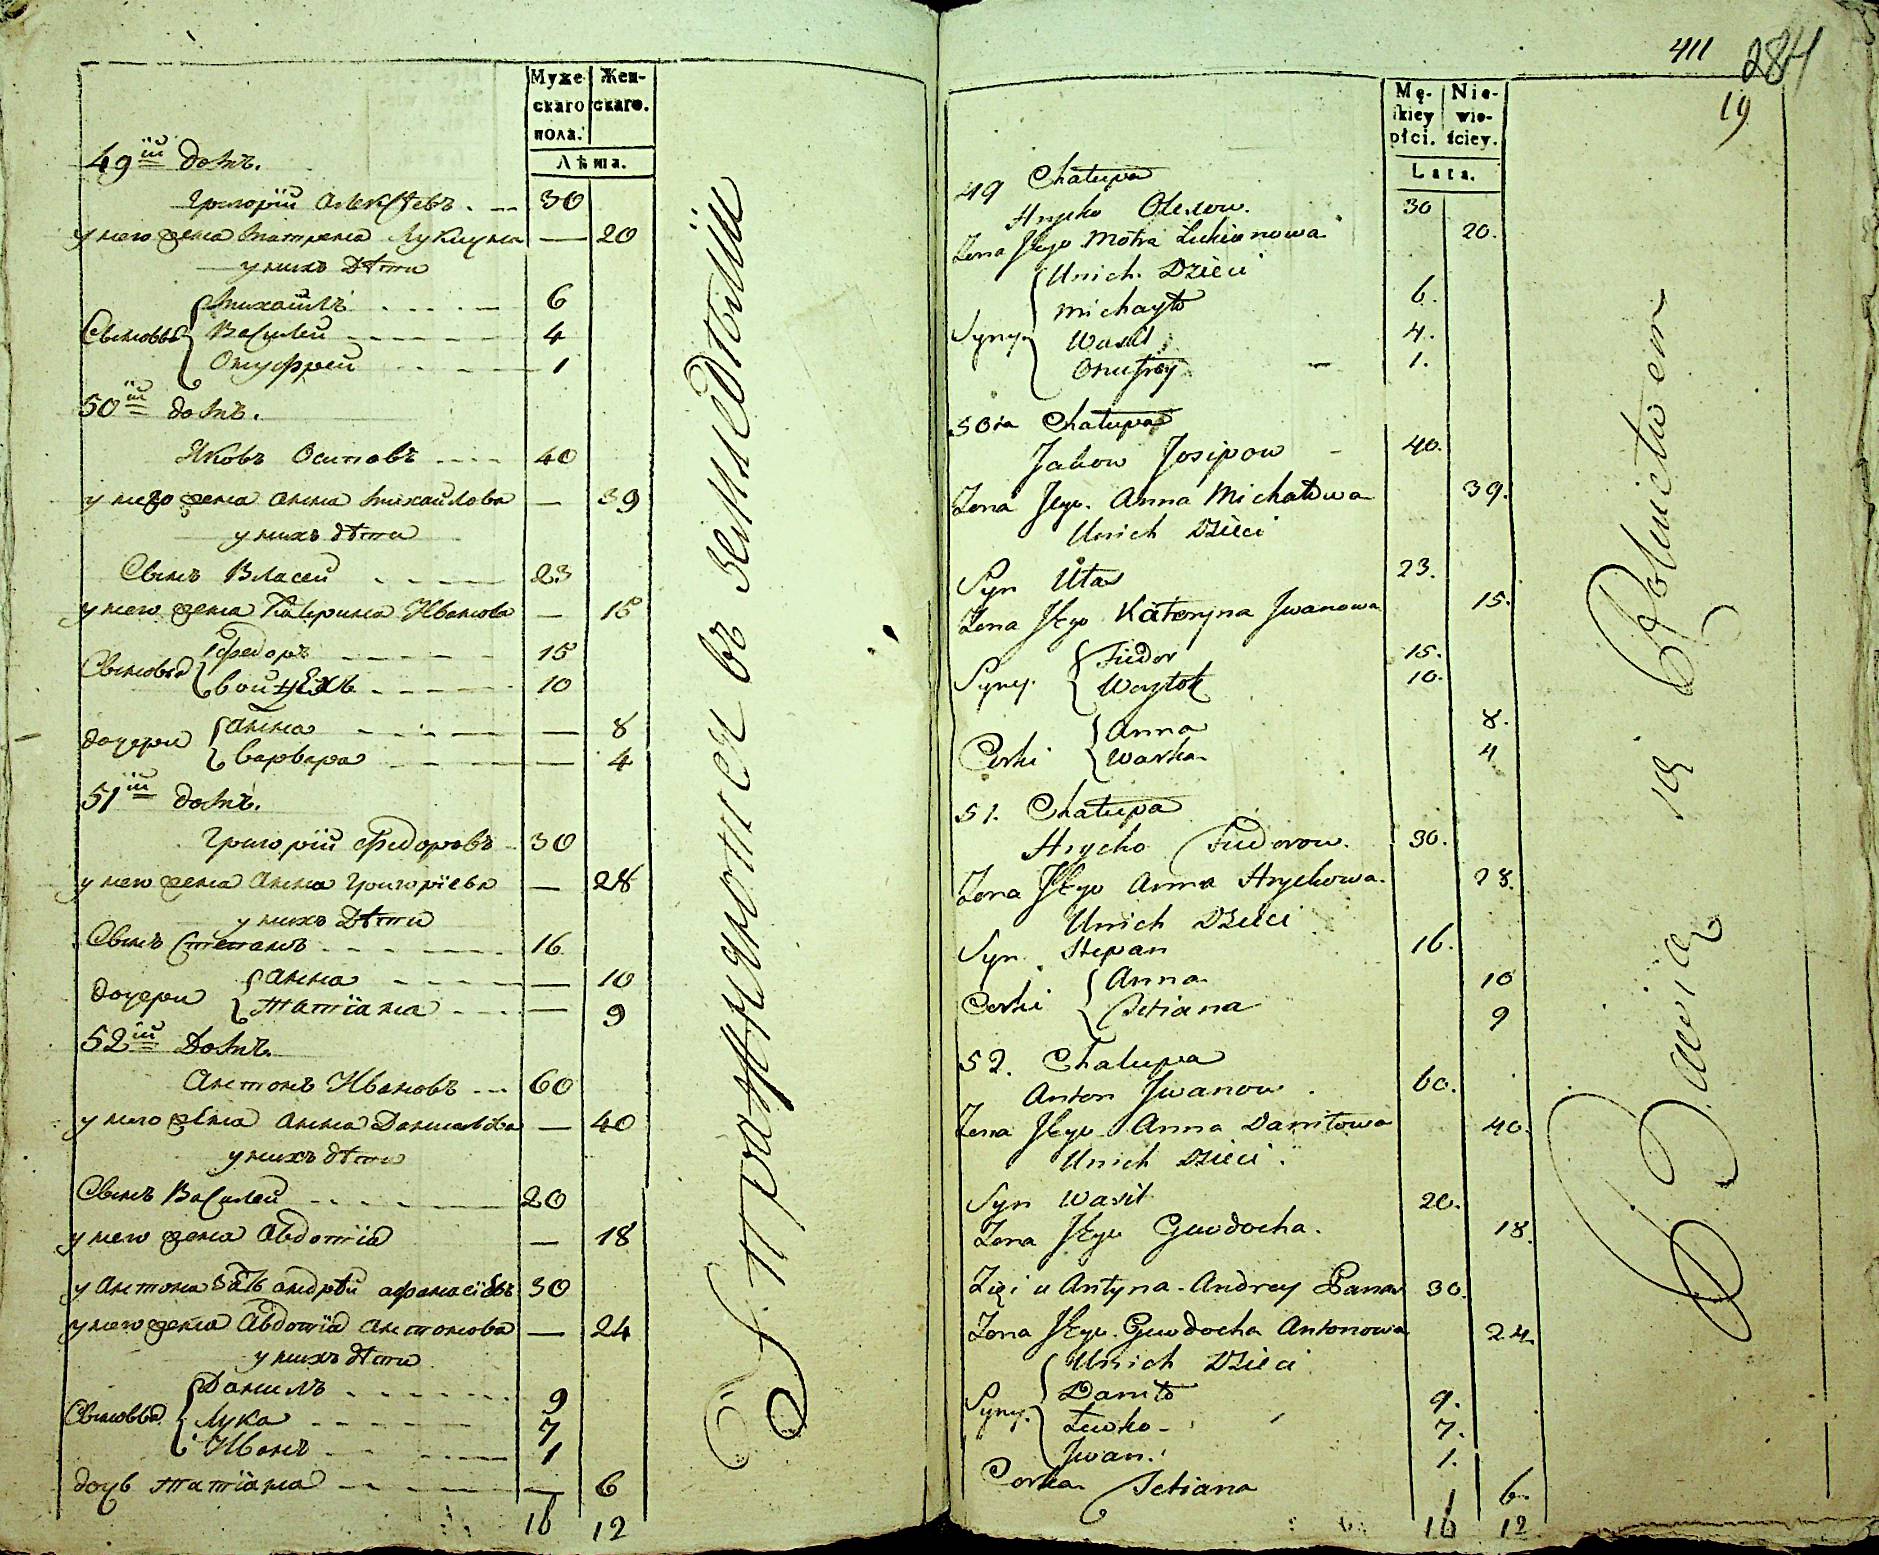 Муже Жен-
скаго скаго.
пола.
Лѣта.
49й домъ.
Григорїй Алексѣевъ 30
у него жена Матрена Лукина — 20
у нихъ дѣти
Сыновья Михаилъ 6
Василей 4
Онуфрей 1
50й домъ.
Яковъ Осиповъ 40
у него жена Анна Михайлова — 39
у нихъ дѣти
Сынъ Власей 23
у него жена Катерина Иванова — 15
Сыновья Федоръ 15
Войцехъ 10
дочери Анна — 8
Варвара — 4
51й домъ.
Григорїй Федоровъ 30
у него жена Анна Григорїева — 28
у нихъ Дѣти
Сынъ Степанъ 16
дочери Анна — 10
Татїана — 9
52й Домъ.
Антонъ Ивановъ 60
у него жена Анна Данилова — 40
у нихъ дѣти
Сынъ Василей 20
у него жена Авдотїа — 18
у Антона зять Андрѣй Афанасїевъ 30
у него жена Авдотїа Антонова — 24
у нихъ дѣти
Сыновья Данилъ 9
Лука 7
Иванъ 1
дочь Татїана — 6
16 12
Упражняются въ земледѣлїи
411 284
19
Mę- Nie-
skiey wie-
płci. ściey.
Lata.
49 Chałupa
Hrycko Olexow. 30
Zona Jego Motra Łukianowa 20.
Unich Dzieci
Syny. Michayło 6.
Wasil 4.
Onufrey 1.
50ta Chałupa
Jakow Josipow 40.
Zona Jego. Anna Michałowa 39.
Unich Dzieci
Syn Ułas 23.
Zona Jego Kateryna Jwanowa 15.
Syny. Fiedor 15.
Woytok 10.
Corki Anna 8.
Warka 4
51. Chałupa
Hrycko Fiedorow. 30.
Zona Jego Anna Hryckowa. 28.
Unich Dzieci
Syn Stepan 16.
Corki Anna 10
Tetiana 9
52. Chałupa
Anton Jwanow 60.
Zona Jego Anna Daniłowa 40.
Unich Dzieci.
Syn Wasil 20.
Zona Jego Gwdocha. 18.
Zięć u Antyna Andrey Panas 30.
Zona Jego Gwdocha Antonowa 24.
Unich Dzieci
Syny. Daniło 9.
Łuwko 7.
Jwan. 1.
Corka Tetiana 6.
16 12
Bawią się Rolnictwem